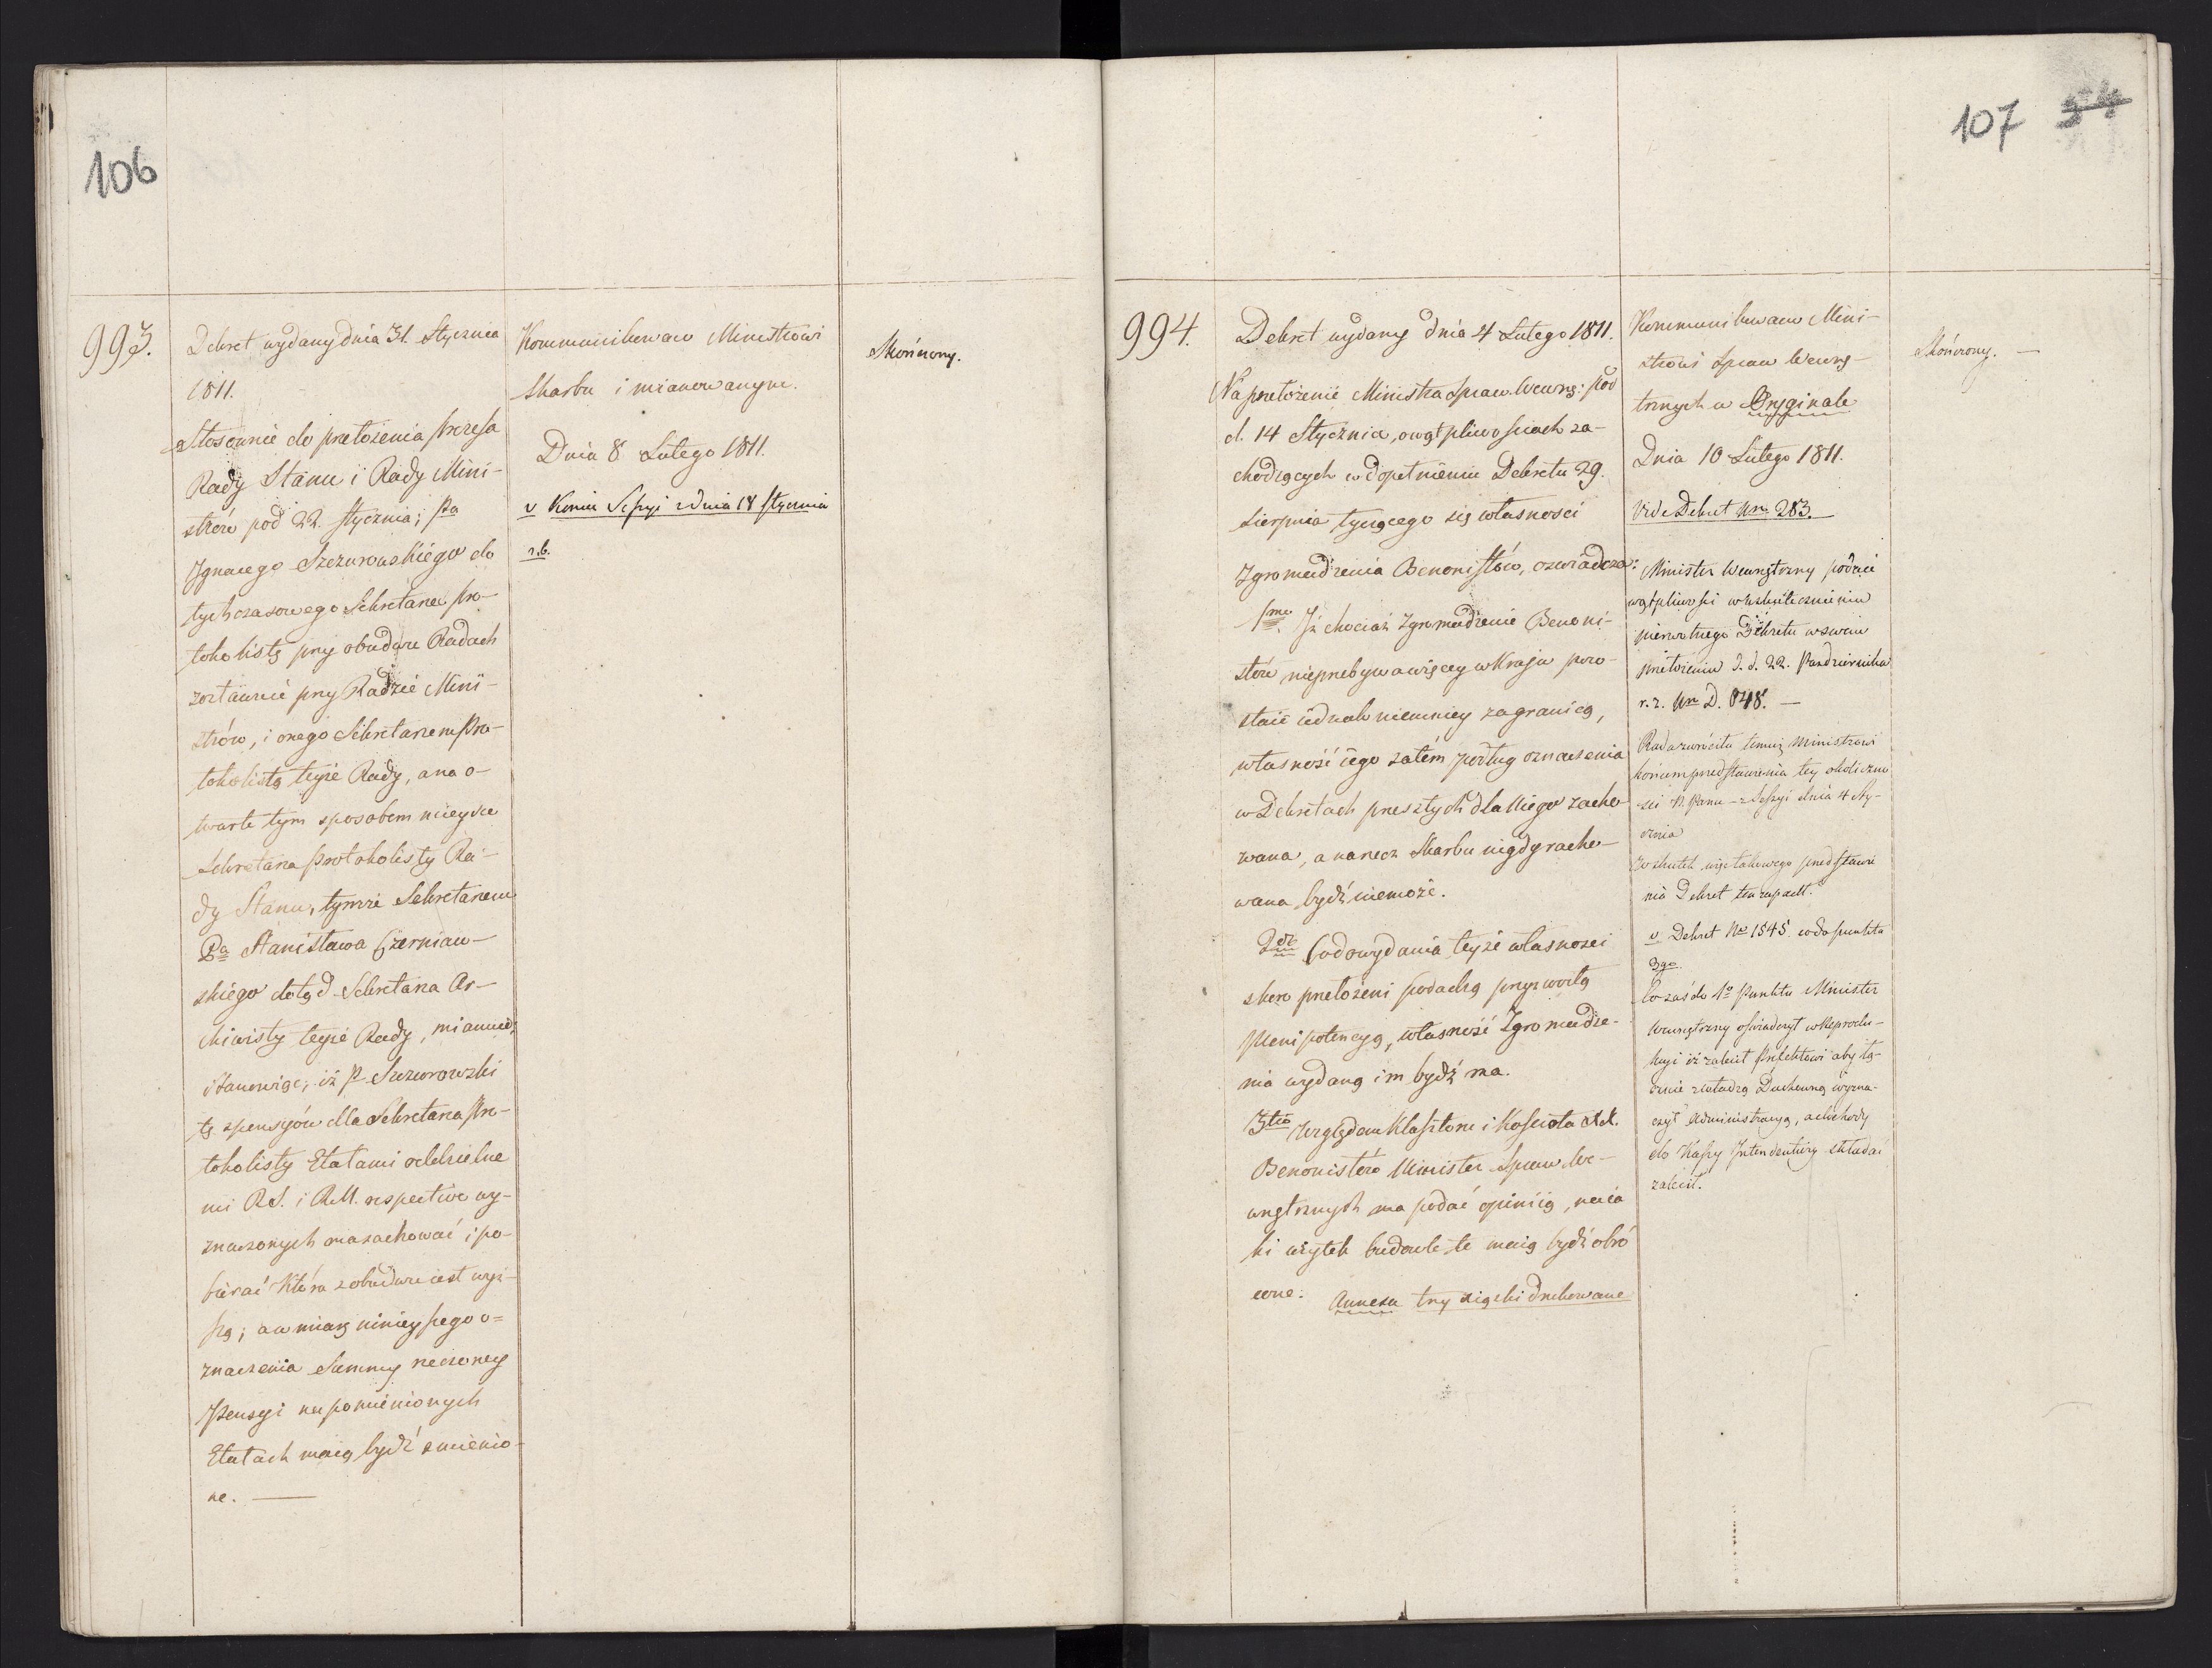 106
993.
Dekret wydany dnia 31. Stycznia
1811.
Stosownie do przełożenia Prezesa
Rady Stanu i Rady Mini-
strów pod 22. Stycznia; Pa
Ignacego Szczurowskiégo do
tychczasowego Sekretarza Pro-
tokolistę przy obudwu Radach
zostawić przy Radzie Mini-
strów, i onego Sekretarzem Pro-
tokolistą teyże Rady, a na o-
twarte tym sposobem mieysce
Sekretarza Protokolisty Ra-
dy Stanu, tymże Sekretarzem
Pa Stanisława Czerniaw-
skiego dotąd Sekretarza Ar-
chiwisty teyże Rady, mianuie;
stanowiąc, iż P. Szczurowski
tę z pensyów dla Sekretarza Pro-
tokolisty Etatami oddzielne
mi R.S. i R.M. respective wy-
znaczonych ma zachować i po-
bierać która z obudwu iest wyż-
szą; a w miarę ninieyszego o=
znaczenia Summy rzeczoney
Pensyi na pomienionych
Etatach maią bydź zmienio-
ne. —
Kommunikowano Ministrowi
Skarbu i mianowanym.
Dnia 8 Lutego 1811.
v Koniec Sessyi z dnia 18 Stycznia
r.b.
Skończony.
107 54
994.
Dekret wydany dnia 4 Lutego 1811.
Na przełożenie Ministra Spraw Wewnę: pod
d. 14 Stycznia, o wątpliwościach za-
chodzących w dopełnieniu Dekretu 29.
Sierpnia tyczącego się własności
Zgromadzenia Benonistów, oświadcza:
1mo. Iż chociaż Zgromadzenie Benoni-
stów nieprzebywa więcey w Kraju pozo-
staie iednak niemniey zagranicą,
własność iego zatém podług oznaczenia
w Dekretach przeszłych dla Niego zacho-
wana, a na rzecz Skarbu nigdy racho-
wana bydź niemoże.
2do Co do wydania teyże własności
skoro przełożeni podadzą przyzwoitą
Plenipotencyą, własność Zgromadze-
nia wydaną im bydź ma.
3tio Względem Klasztoru i Kościoła XX.
Benonistów Minister Spraw We-
wnętrznych ma podać opiniią, na ia
ki użytek budowle te maią bydź obró
cone.
Annexa trzy xiążki drukowane
Kommunikowano Mini-
strowi Spraw Wewnę-
trznych w Oryginale
Dnia 10 Lutego 1811.
Vide Dekret Nro 283.
Minister Wewnętrzny podaie
wątpliwości w uskutecznieniu
pierwotnego Dekretu w swoim
przełożeniu d. d. 22. Pazdziernika
r. z. Nro D. 848. —
Rada zwróciła temuż Ministrowi
końcem przedstawienia tey okoliczno
ści N. Panu – z Sessyi dnia 4 Sty-
cznia
W skutek więc takowego przedstawie
nia Dekret ten zapadł.
v Dekret No 1545 co do punktu
3go.
Co zaś do 1o Punktu Minister
Wewnętrzny oświadczył w Reprodu-
kcyi iż zalecił Prefektowi aby łą-
cznie z władzą Duchowną wyzna-
czył Administracyą, a dochody
do Kassy Intendentury składać
zalecił.
Skończony. —